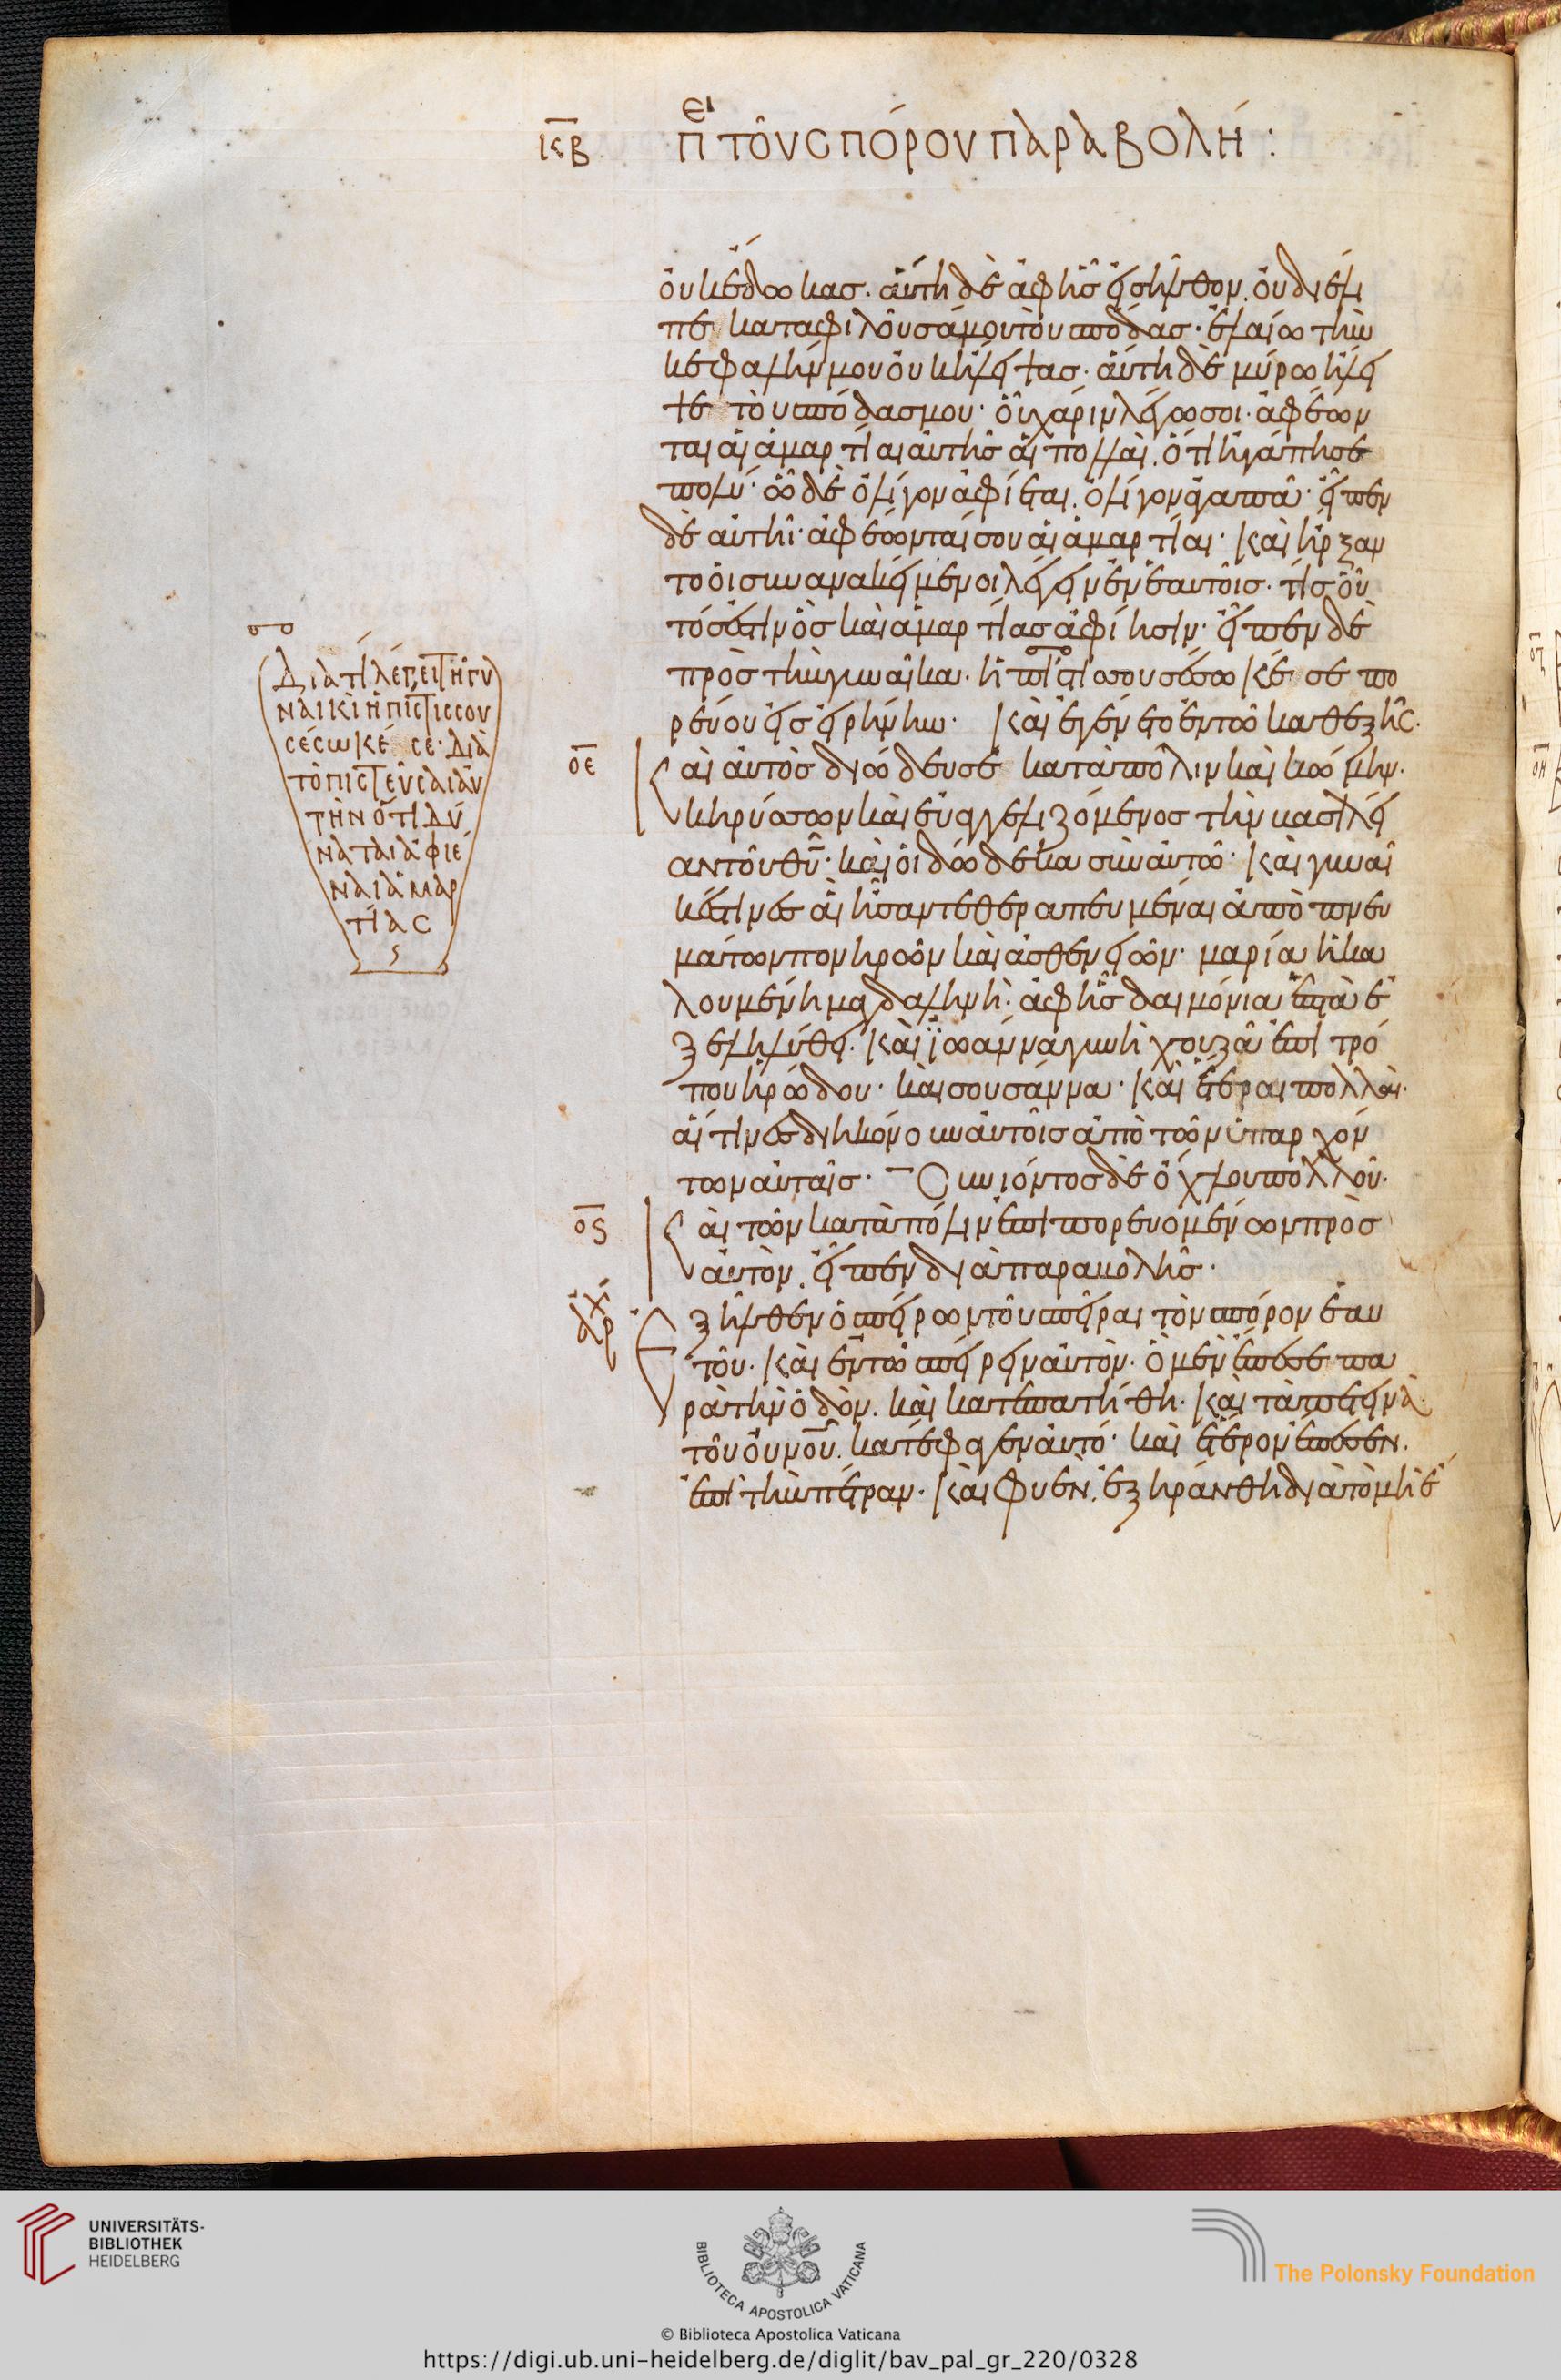 κβ περὶ τοῦ σπόρου παραβολή:
οὐκ ἔδωκας. αὕτη δὲ ἀφ' ἧς εἰσῆλθον. οὐ διέλι
πε καταφιλοῦσά μου τοὺς πόδας. ἐλαίω τὴν
κεφαλήν μου οὐκ ἤλειψας. αὕτη δὲ μύρω ἤλει
ψε τοὺς πόδας μου. οὗ χάριν λέγω σοι. ἀφέων
ται αἱ ἁμαρτίαι αὐτῆς αἱ πολλαὶ. ὅτι ἠγάπησε
πολύ. ὧ δὲ ὀλίγον ἀφίεται. ὀλίγον ἀγαπᾶ. εἶπεν
δὲ αὐτῆ. ἀφέωνταί σου αἱ ἁμαρτίαι. καὶ ἤρξαν
το οἱ συνανακείμενοι λέγειν ἐν ἑαυτοῖς. τίς οὗ
τός ἐστιν ὃς καὶ ἁμαρτίας ἀφίησιν. εἶπεν δὲ
πρὸς τὴν γυναῖκα. ἡ πίστις σου σέσωκέ σε πο
ρεύου εἰς εἰρήνην. καὶ ἐγένετο ἐν τῶ καθεξῆς.
οε καὶ αὐτὸς διώδευσε κατὰ πόλιν καὶ κώμην.
κηρύσσων καὶ εὐαγγελιζόμενος τὴν βασιλεί
αν τοῦ θῦ. καὶ οἱ δώδεκα σὺν αὐτῶ. καὶ γυναῖ
κές τινες αἳ ἦσαν τεθεραπευμέναι ἀπὸ πνευ
μάτων πονηρῶν καὶ ἀσθενειῶν. μαρία ἡ κα
λουμένη μαγδαληνὴ. ἀφ' ἧς δαιμόνια ἑπτὰ ἐ
ξεληλύθει. καὶ ϊωάννα γυνὴ χουζᾶ ἐπιτρό
που ἡρώδου. καὶ σουσάννα. καὶ ἕτεραι πολλαὶ.
αἵτινες διηκόνουν αὐτοῖς ἀπὸ τῶν ὑπαρχόν
των αὐταῖς. Συνιόντος δὲ ὄχλου πολλοῦ.
οϛ καὶ τῶν κατὰ πόλιν ἐπιπορευομένων πρὸς
αὐτὸν. εἶπεν διὰ παραβολῆς.
ἀρχ Ἐξῆλθεν ὁ σπείρων τοῦ σπεῖραι τὸν σπόρον ἑαυ
τοῦ. καὶ ἐν τῶ σπείρειν αὐτὸν. ὃ μὲν ἔπεσε πα
ρὰ τὴν ὁδὸν. καὶ κατεπατήθη. καὶ τὰ πετεινὰ
τοῦ οὐνοῦ. κατέφαγεν αὐτό. καὶ ἕτερον ἔπεσεν.
ἐπὶ τὴν πέτραν. καὶ φυὲν. ἐξηράνθη διὰ τὸ μὴ ἔ
Διατί λέγει τῆ γυ
ναικὶ ἡ πίστις σου
σέσωκέ σε. Διὰ
τὸ πιστεῦσαι αὐ
τὴν ὅτι δύ
ναται ἀφιέ
ναι ἁμαρ
τίας
UNIVERSITÄTS-
BIBLIOTHEK
HEIDELBERG
BIBLIOTECA APOSTOLICA VATICANA
© Biblioteca Apostolica Vaticana
The Polonsky Foundation
https://digi.ub.uni-heidelberg.de/diglit/bav_pal_gr_220/0328